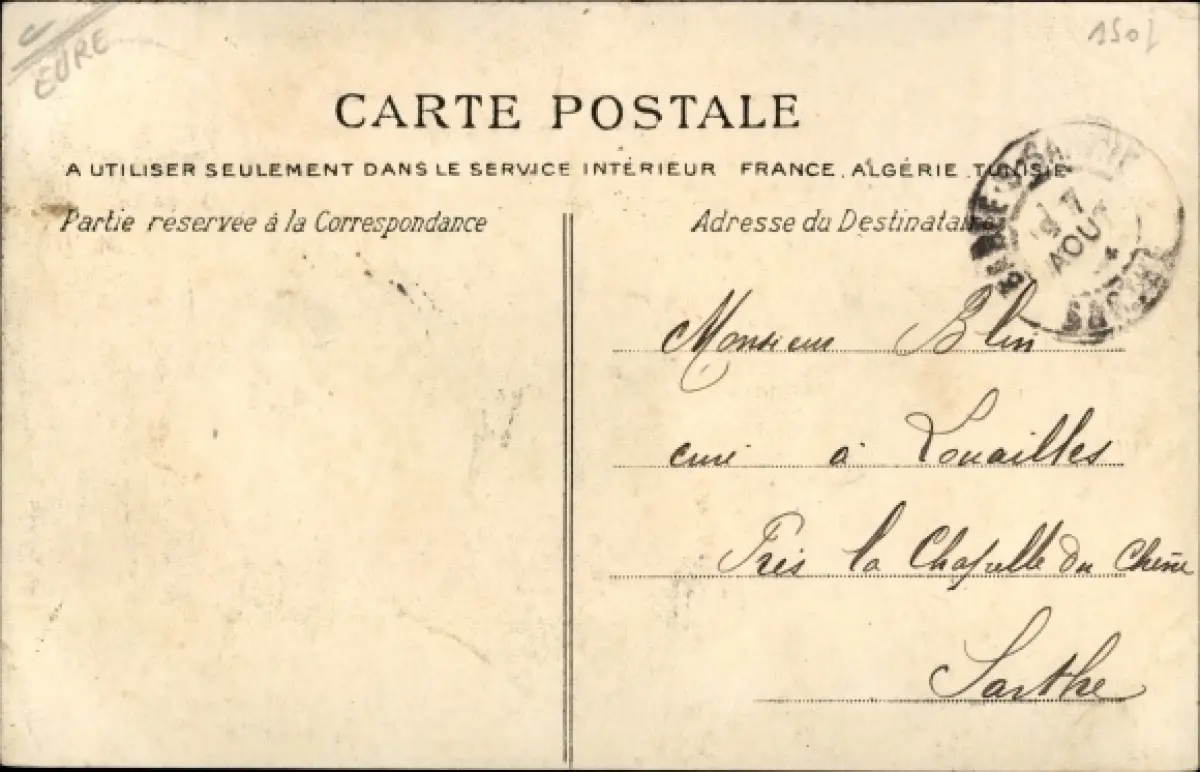 EURE
150f
CARTE POSTALE
A UTILISER SEULEMENT DANS LE SERVICE INTÉRIEUR FRANCE, ALGÉRIE, TUNISIE
Partie réservée à la Correspondance
Adresse du Destinataire
7
AOUT
Monsieur Blin
curé à Louailles
Près la Chapelle du Chêne
Sarthe